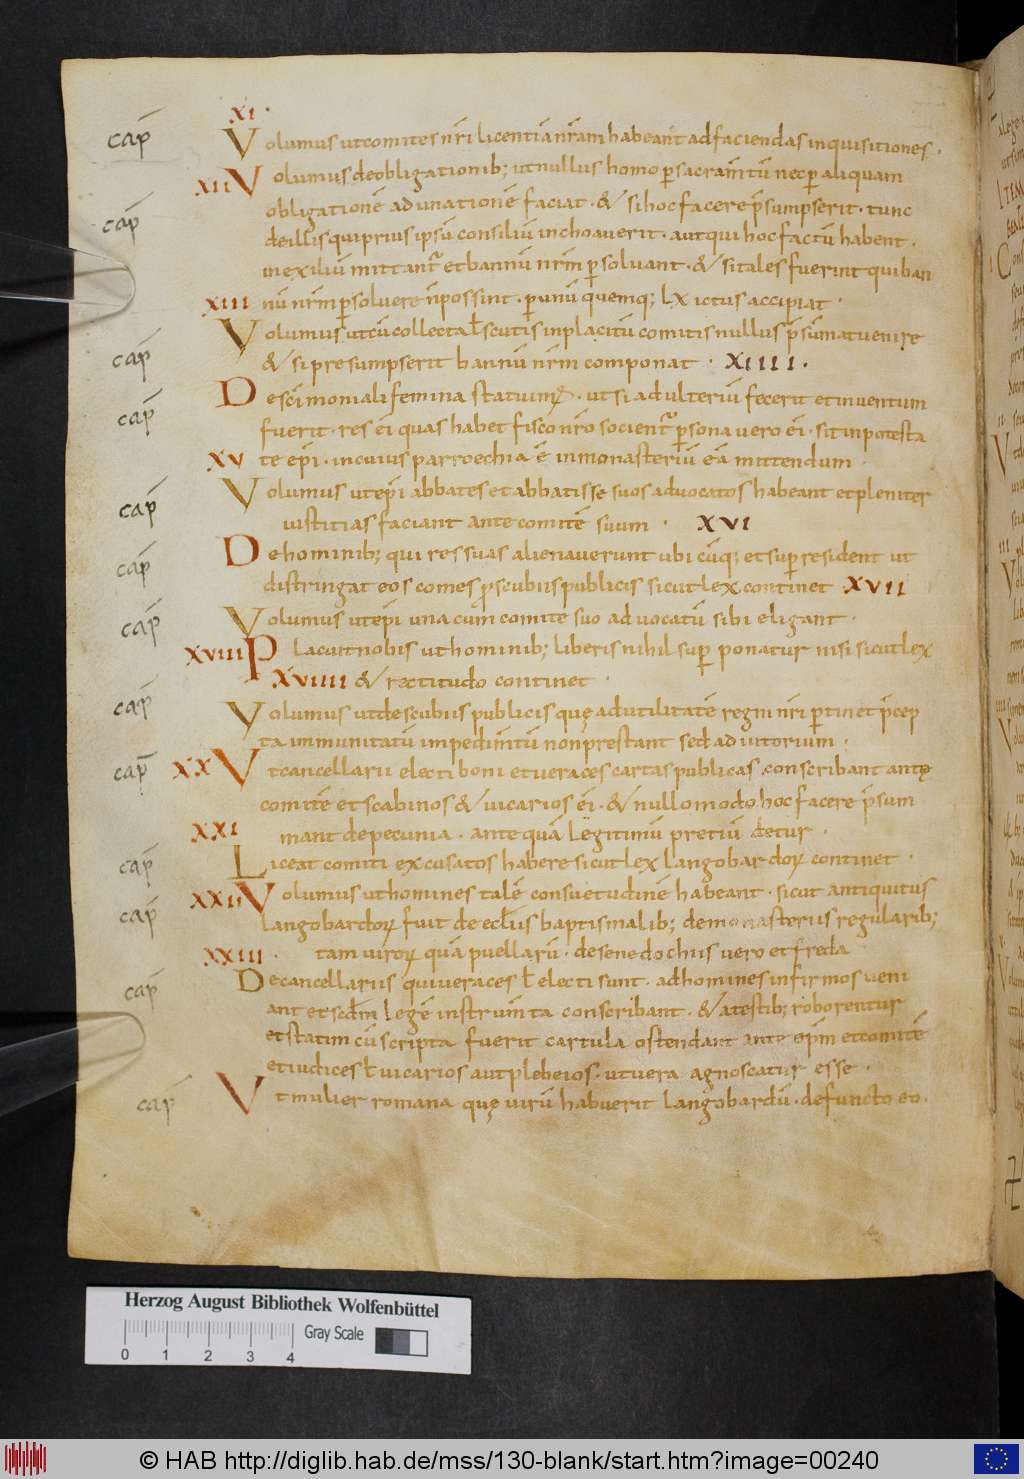 XI.
cap̄ Volumus ut comites nr̄i licentiā nr̄am habeant ad faciendas inquisitiones.
cap̄ XII Volumus de obligationib; ut nullus homo p̱ sacram̄tū nec p̱ aliquam
obligationē adunationē faciat. & si hoc facere p̄sumpserit. tunc
de illis qui prius ipsū consiliū inchoaverit. aut qui hoc factū habent.
in exiliū mittant̄ et bannū nr̄m p̱soluant. & si tales fuerint qui ban
XIII nū nr̄m p̱soluere n̄ possint. p̱ unū quemq; LX ictus accipiat.
cap̄ Volumus ut cū collecta ł scutis in placitū comitis nullus p̄sumat venire
& si presumpserit bannū nr̄m componat. XIIII.
cap̄ De sc̄imoniali femina statuim᷒. ut si adulteriū fecerit et inventum
fuerit. res ei quas habet fisco nr̄o socient̄ p̱sona vero ei. sit in potesta
XV te ep̄i. in cuius parroechia ē in monasteriū eā mittendum.
cap̄ Volumus ut ep̄i abbates et abbatisse suos advocatos habeant et pleniter
iustitias faciant ante comitē suum. XVI
cap̄ De hominib; qui res suas alienaverunt ubicūq; et sup̱ resident ut
distringat eos comes p̱ scubiis publicis sicut lex continet XVII
cap̄ Volumus ut ep̄i una cum comite suo advocatū sibi eligant.
XVIII Placuit nobis ut hominib; liberis nihil sup̱ ponatur nisi sicut lex
XVIIII & rectitudo continet.
cap̄ Volumus ut de scubiis publicis quę ad utilitatē regni nr̄i p̱tinet p̄cep
ta immunitatū impedim̄tū non prestant sed adiutorium.
cap̄ XX Ut cancellarii electi boni et veraces cartas publicas conscribant ante
comitē et scabinos & vicarios ei. & nullo modo hoc facere p̄sum
XXI mant de pecunia. ante quā legitimū pretiū detur.
cap̄ Liceat comiti excusatos habere sicut lex langobardoꝝ continet.
cap̄ XXII Volumus ut homines talē consuetudinē habeant. sicut antiquitus
langobardoꝝ fuit de ecłiis baptismalib; de monasteriis regularib;
XXIII. tam viroꝝ quā puellarū. de senedochiis vero et freda
cap̄ De cancellariis qui veraces ł electi sunt. ad homines infirmos veni
ant et scd̄m legē instrum̄ta conscribant. & a testib; roborentur
et statim cū scripta fuerit cartula ostendant ante ep̄m et comitē
et iudices ł vicarios aut plebeios. ut vera agnoscatur esse.
cap̄ Ut mulier romana quę virū habuerit langobardū. defuncto eo.
Herzog August Bibliothek Wolfenbüttel
Gray Scale
0 1 2 3 4
© HAB http://diglib.hab.de/mss/130-blank/start.htm?image=00240